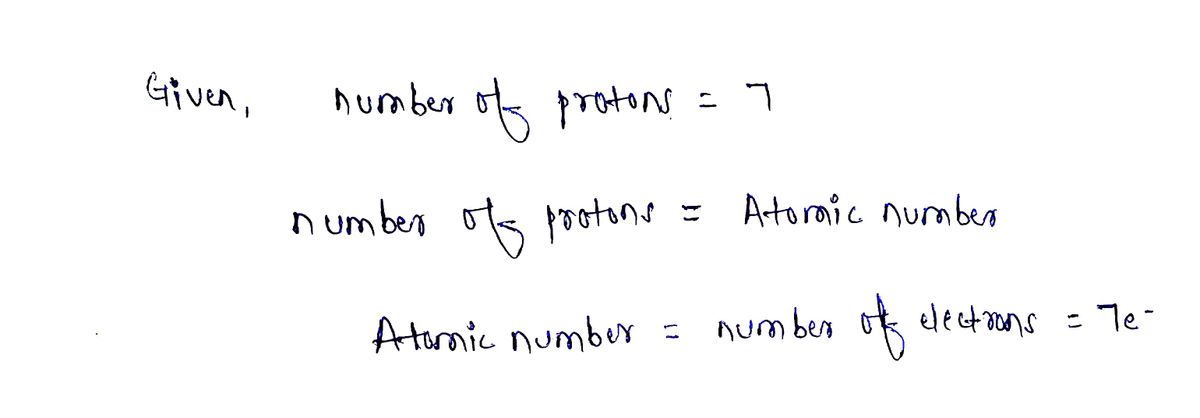 Given, number of protons = 7
number of protons = Atomic number
Atomic number = number of electrons = 7e-